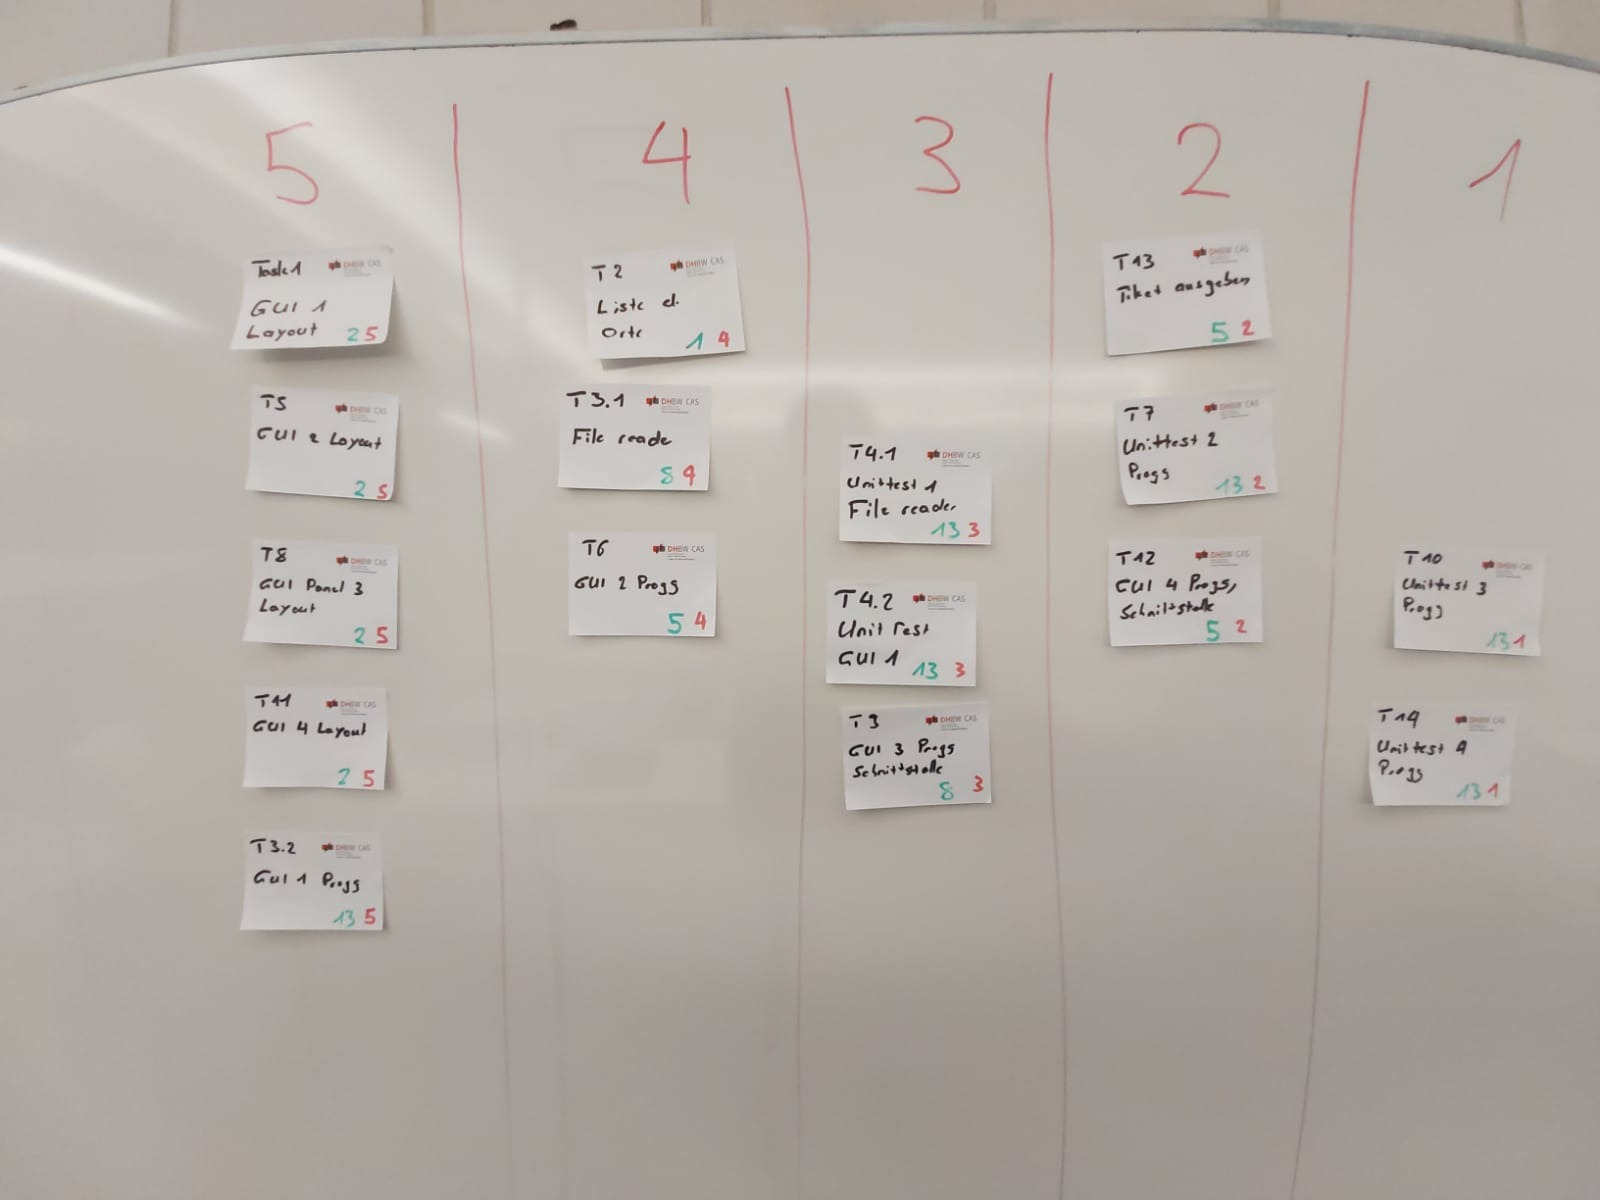 5
4
3
2
1
Task 1
DHBW CAS
GUI 1
Layout
2 5
T5
DHBW CAS
GUI 2 Layout
2 5
T8
DHBW CAS
GUI Panel 3
Layout
2 5
T11
DHBW CAS
GUI 4 Layout
2 5
T3.2
DHBW CAS
GUI 1 Progg
13 5
T2
DHBW CAS
Liste d.
Orte
1 4
T3.1
DHBW CAS
File reade
8 4
T6
DHBW CAS
GUI 2 Progg
5 4
T4.1
DHBW CAS
Unittest 1
File reader
13 3
T4.2
DHBW CAS
Unit Test
GUI 1
13 3
T9
DHBW CAS
GUI 3 Progg
Schnittstelle
8 3
T13
DHBW CAS
Tiket ausgeben
5 2
T7
DHBW CAS
Unittest 2
Progg
13 2
T12
DHBW CAS
GUI 4 Progg,
Schnittstelle
5 2
T10
DHBW CAS
Unittest 3
Progg
13 1
T14
DHBW CAS
Unittest 4
Progg
13 1